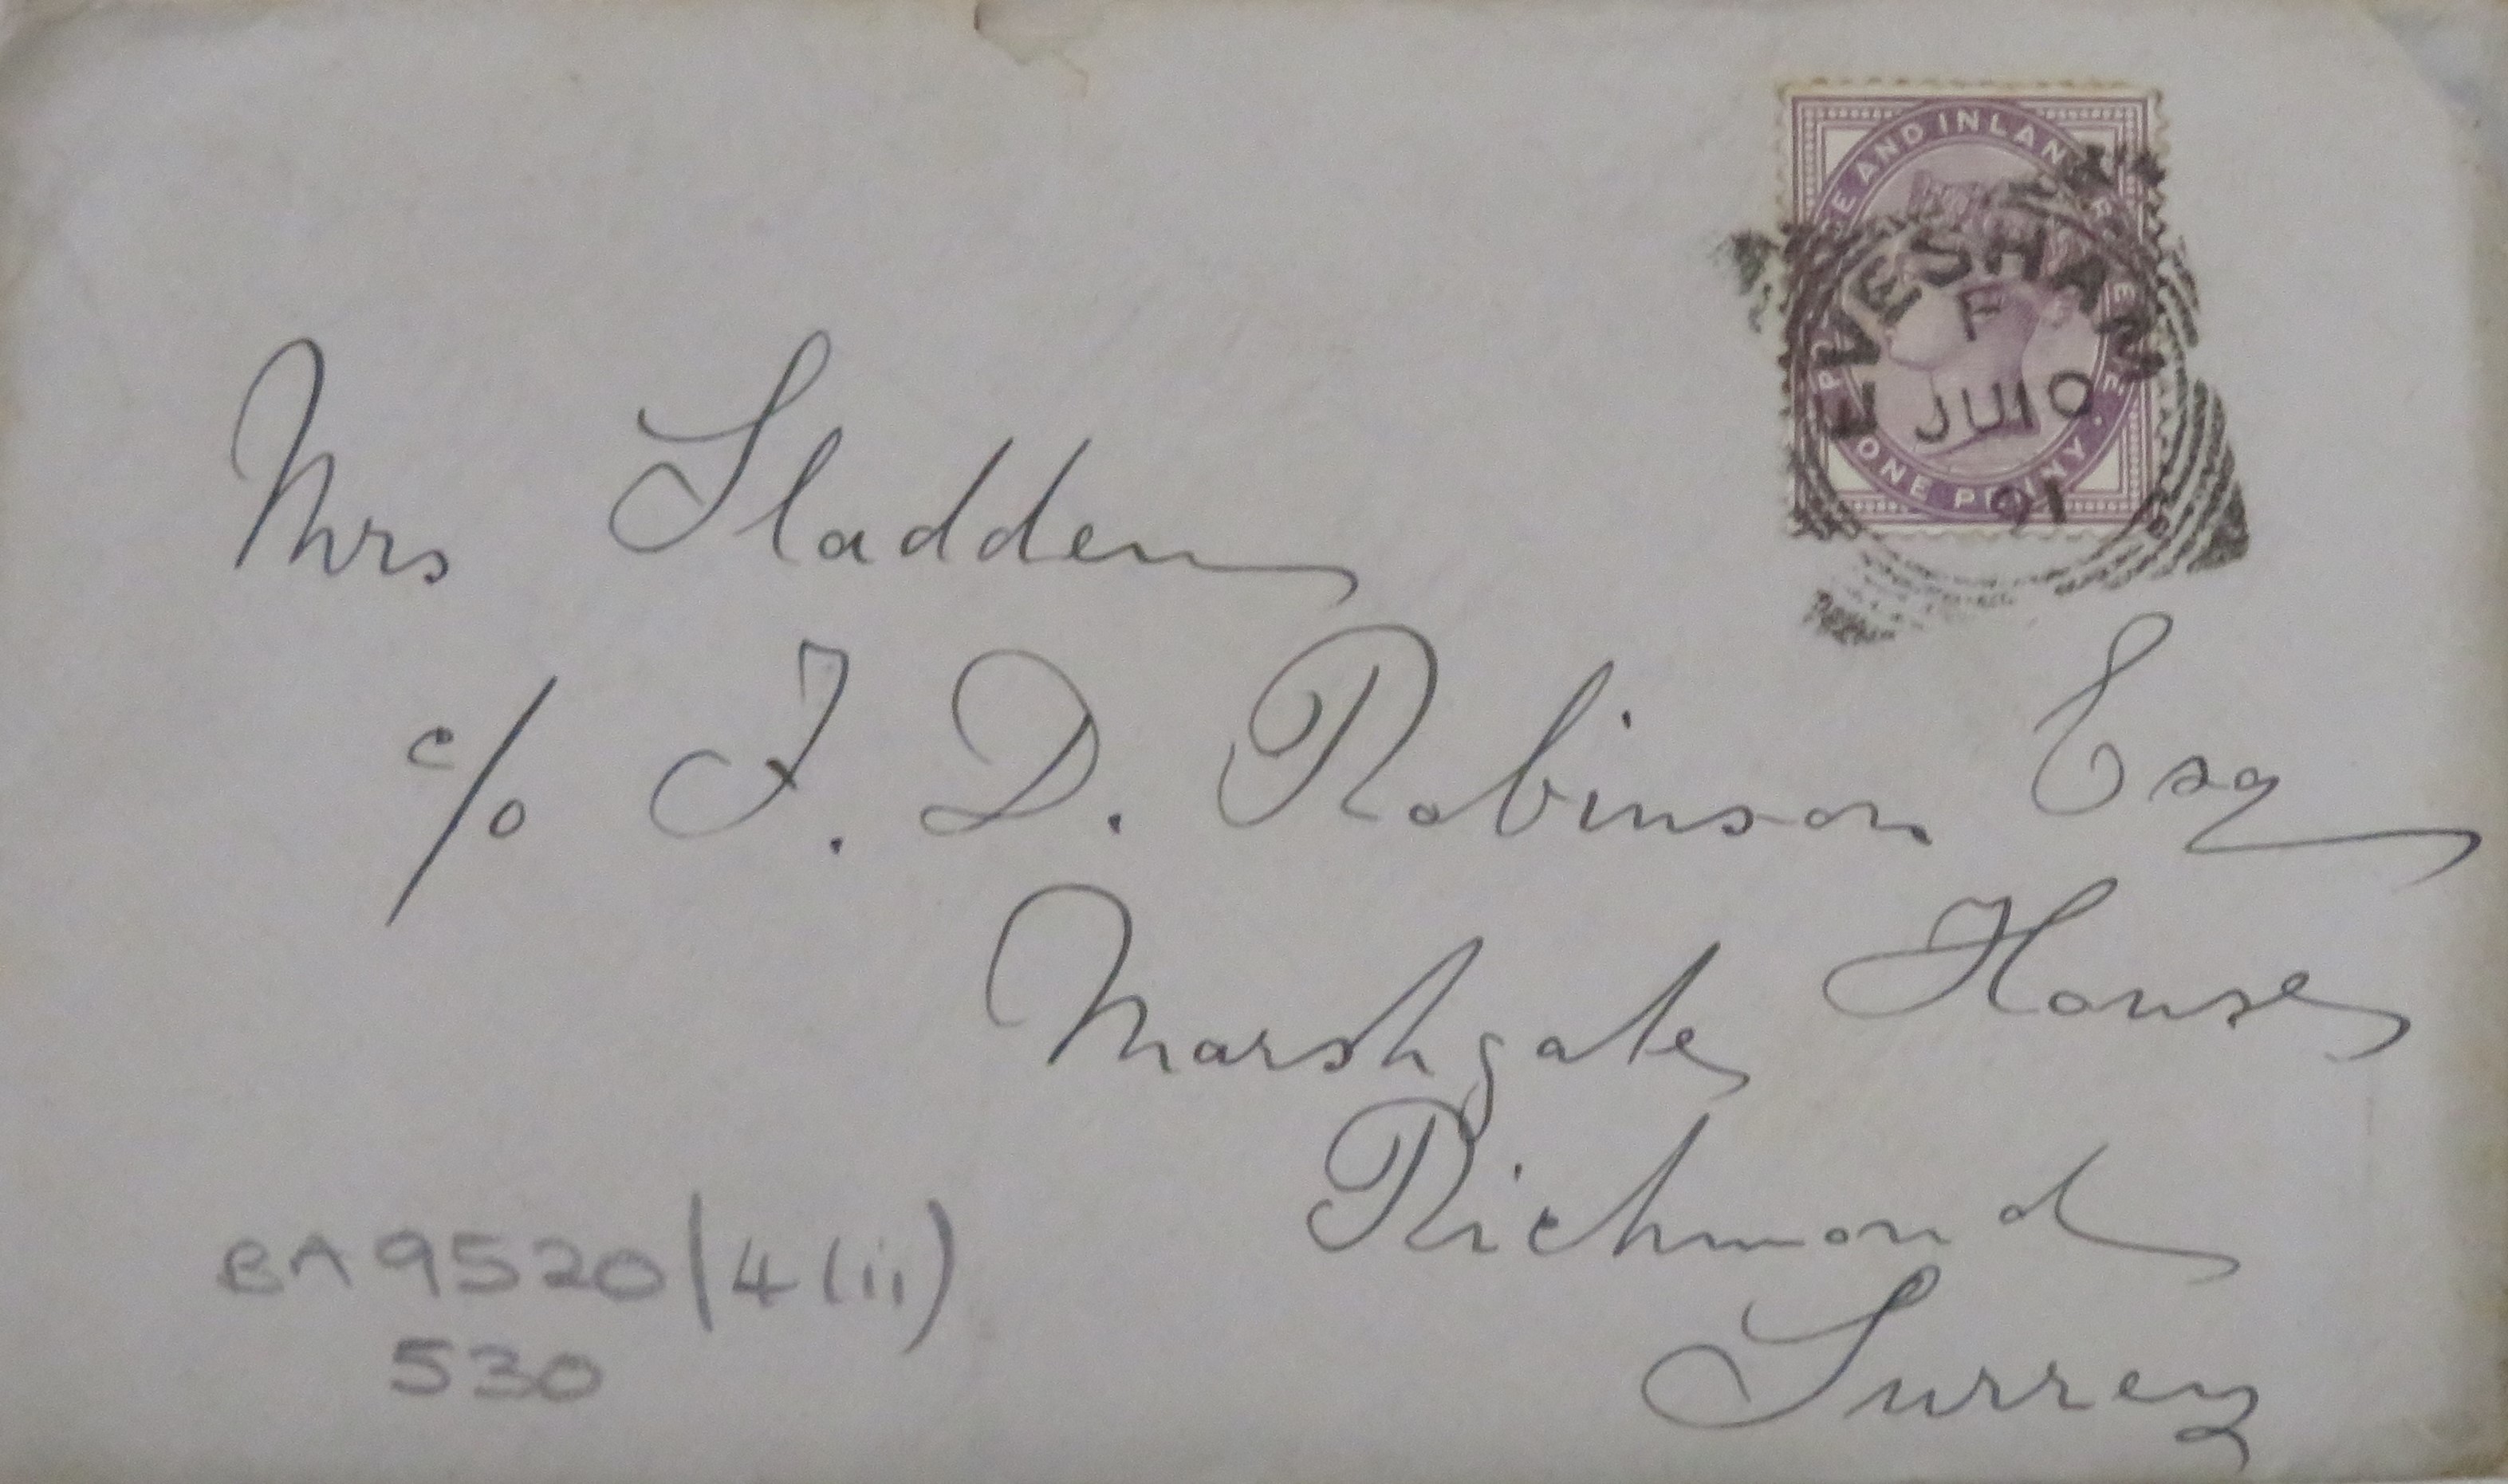 POSTAGE AND INLAND REVENUE
ONE PENNY
EVESHAM
F
JU 10
91
Mrs Sladden
c/o J. D. Robinson Esq
Marshgate House
Richmond
Surrey
BA 9520/4(ii)
530